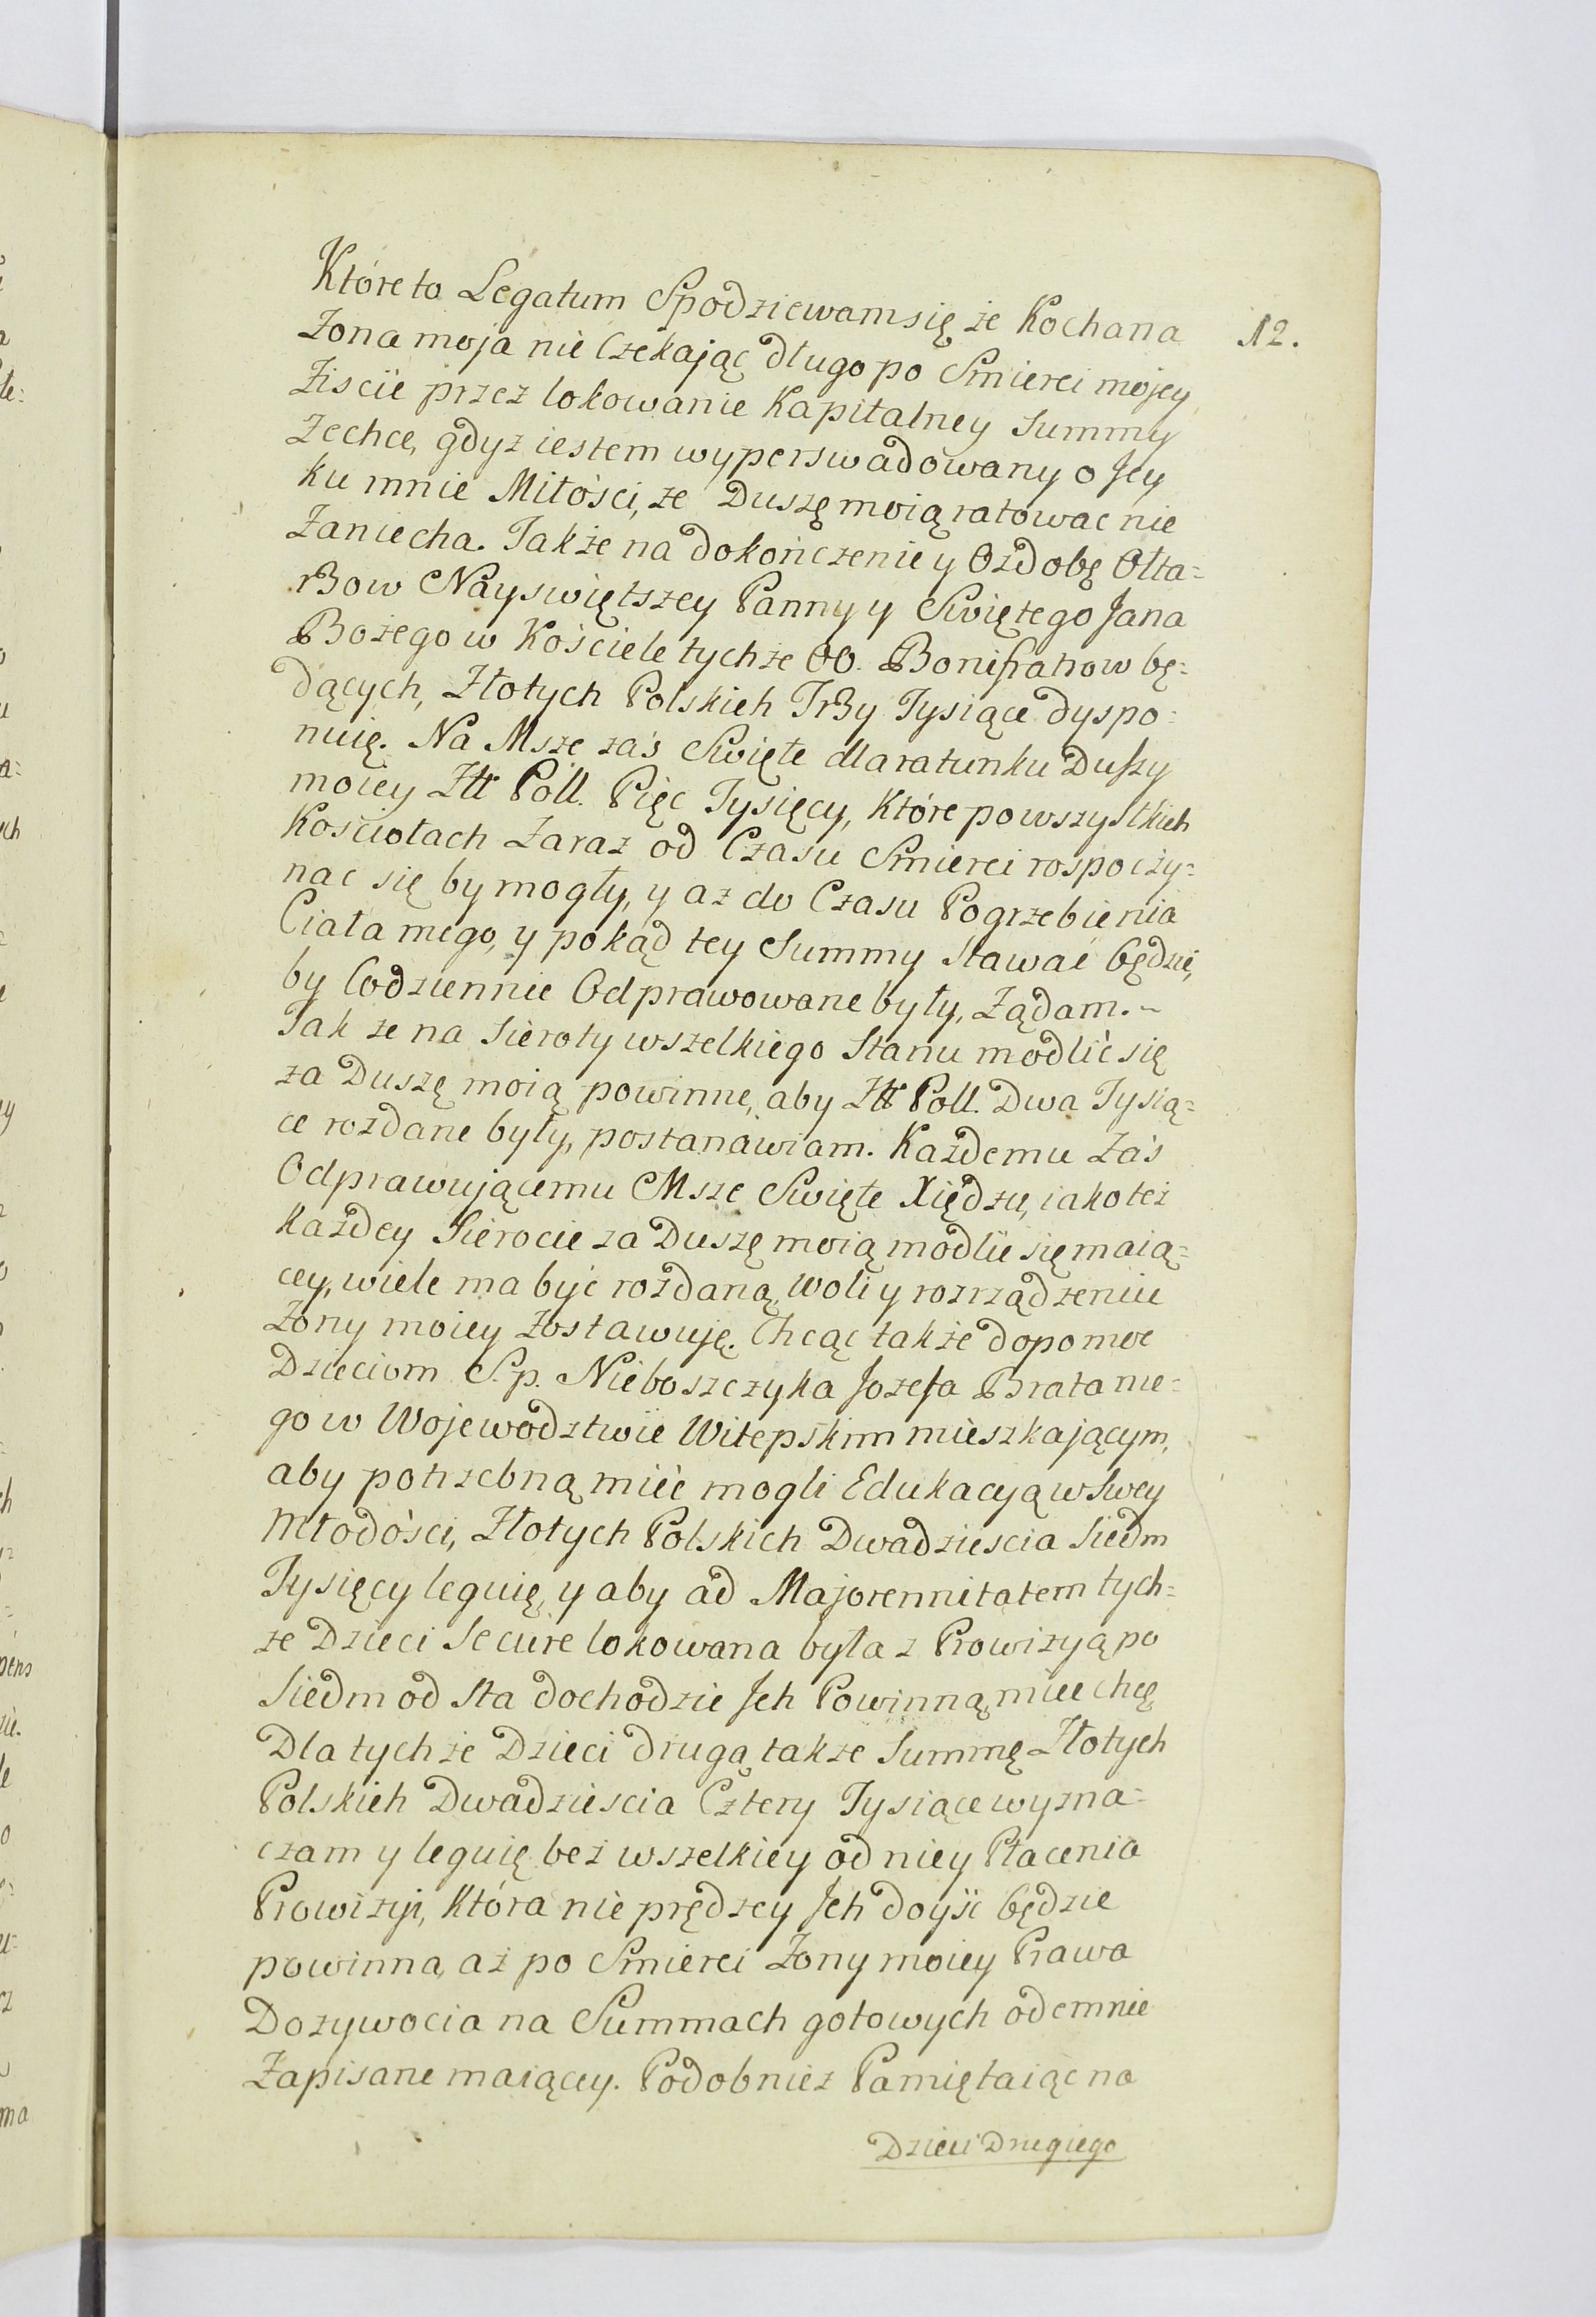 Które to Legatum Spodziewam się że Kochana
12.
Żona moja nie Czekając długo po Smierci mojey
Ziscić przez lokowanie Kapitalney Summy
Zechce, gdyż iestem wyperswadowany o Jey
ku mnie Miłości, że Duszę moią ratować nie
Zaniecha. Także na dokończenie y Ozdobę Ołta=
rzow Nayswiętszey Panny y Swiętego Jana
Bożego w Kościele tychże OO. Bonifratrow bę=
dących, Złotych Polskich Trzy Tysiące dyspo=
nuię. Na Msze zaś Swięte dla ratunku Duszy
moiey Złt Poll. Pięc Tysięcy, Które po wszystkich
Kościołach Zaraz od Czasu Smierci rospoczy=
nac się by mogły, y az do Czasu Pogrzebienia
Ciała mego, y pokąd tey Summy Stawać będzie,
by Codziennie Odprawowane były, Żądam.-
Tak że na Sieroty wszelkiego Stanu modlić się
za Duszę moią powinne, aby Złt Poll. Dwa Tysią=
ce rozdane były, postanawiam. Każdemu Zaś
Odprawującemu Msze Swięte Xiędzu, iako też
każdey Sierocie za Duszę moią modlić się maią=
cey, wiele ma być rozdaną, Woli y rozrządzeniu
Żony moiey Zostawuję. Chcąc także dopomoc
Dzieciom S.p. Nieboszczyka Jozefa Brata me=
go w Wojewodztwie Witepskim mieszkającym,
aby potrzebną mieć mogli Edukacyą w Swey
Młodości, Złotych Polskich Dwadziescia Siedm
Tysięcy leguię, y aby ad Majorennitatem tych=
że Dzieci Secure lokowana była z Prowizyą po
Siedm od Sta dochodzić Jch Powinną, mieć chcę
Dla tychże Dzieci drugą także Summę Złotych
Polskich Dwadziescia Cztery Tysiące wyzna=
czam y leguię bez wszelkiey od niey Płacenia
Prowizyi, Która nie prędzey Jch doyść będzie
powinna, aż po Smierci Żony moiey Prawa
Dozywocia na Summach gotowych odemnie
Zapisane maiącey. Podobnież Pamiętaiąc na
Dzieci Drugiego